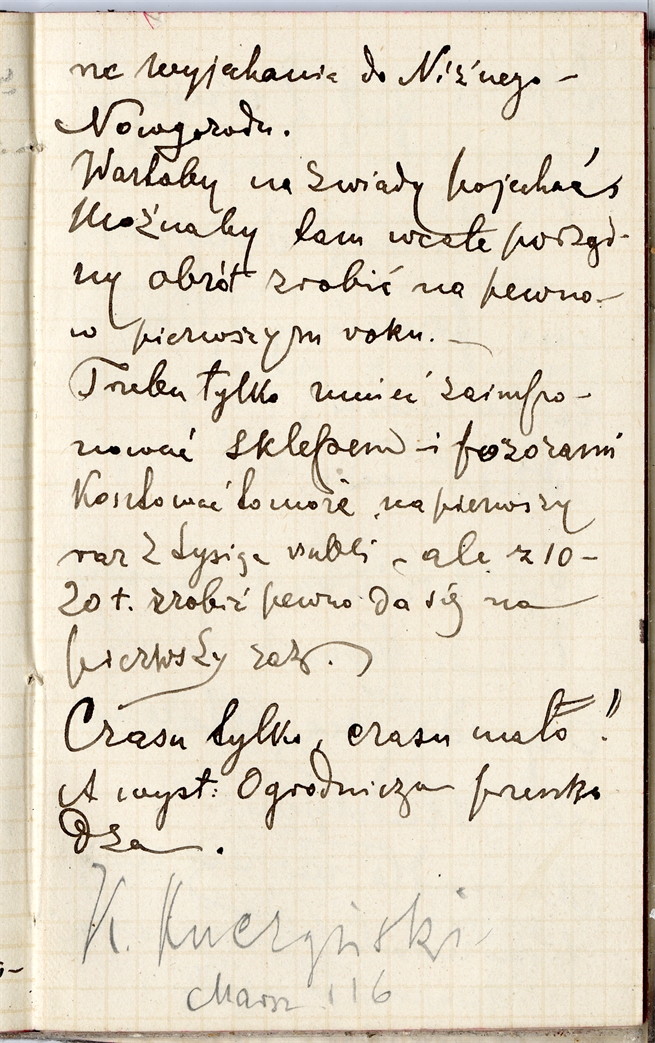 ne wyjechania do Niźnego –
Nowogrodu.
Wartoby na zwiady pojechać
Możnaby tam wcale porząd-
ny obrót zrobić na pewno –
w pierwszym roku. –
Trzeba tylko umieć zaimpo-
nować sklepem – i pozorami
Kosztować to może na pierwszy
raz 2 tysiące rubli – ale z 10 –
20 t. zrobić pewno da się na
pierwszy raz.
Czasu tylko, czasu mało!!
A wyst: Ogrodnicza przeszka
dza.
K. Kuczyński
Marsz 116